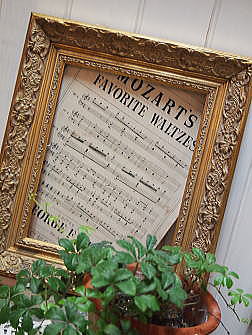 MOZART'S
FAVORITE WALTZES